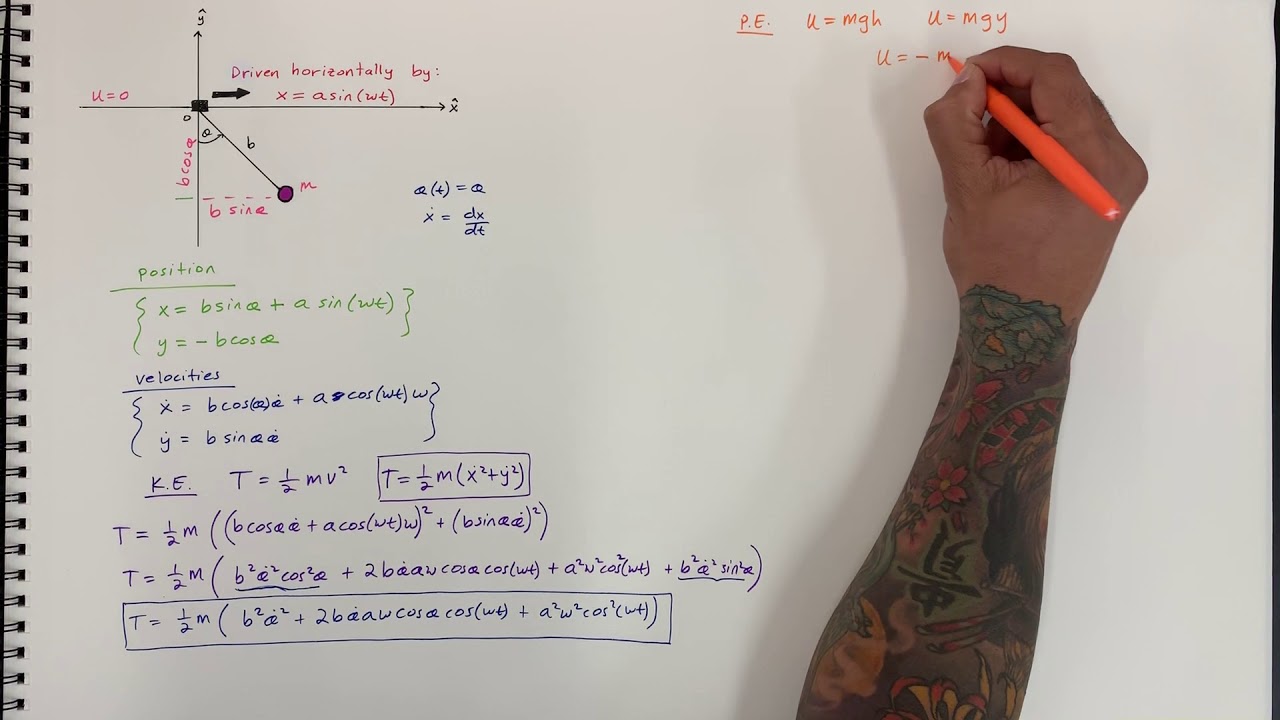 ŷ
Driven horizontally by:
x = a sin(ωt)
U = 0
x̂
0
θ
b
b cosθ
m
b sinθ
θ(t) = θ
ẋ = dx/dt
position
{ x = b sinθ + a sin(ωt) }
{ y = - b cosθ }
velocities
{ ẋ = b cos(θ)θ̇ + a cos(ωt) ω }
{ ẏ = b sinθ θ̇ }
K.E. T = 1/2 m v² T = 1/2 m (ẋ² + ẏ²)
T = 1/2 m ((b cosθ θ̇ + a cos(ωt) ω)² + (b sinθ θ̇)²)
T = 1/2 m ( b²θ̇² cos²θ + 2bθ̇aω cosθ cos(ωt) + a²ω² cos²(ωt) + b²θ̇² sin²θ )
T = 1/2 m ( b²θ̇² + 2bθ̇aω cosθ cos(ωt) + a²ω² cos²(ωt) )
P.E. U = mgh U = mgy
U = - m